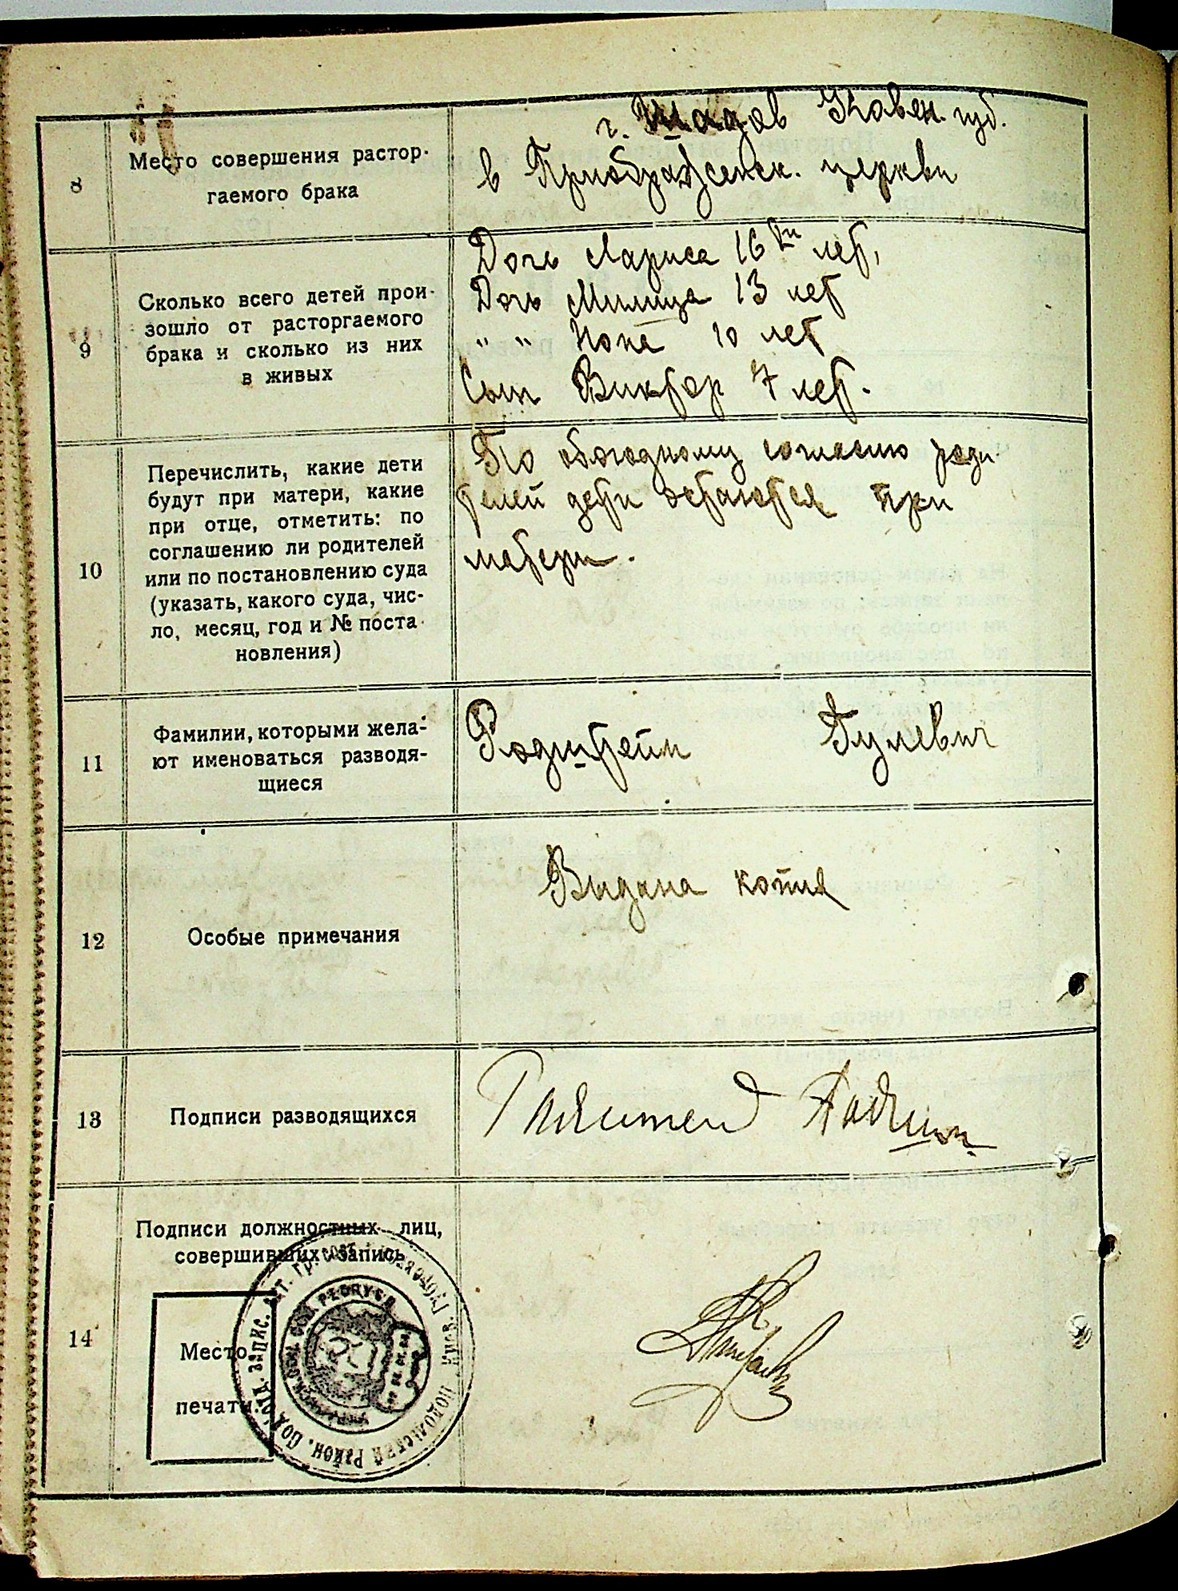 8
Место совершения растор-
гаемого брака
г. Шадов Ковен. губ.
в Приображенск. церкви
9
Сколько всего детей прои-
зошло от расторгаемого
брака и сколько из них
в живых
Дочь Лариса 16ти лет,
Дочь Милица 13 лет
" " Нона 10 лет
Сын Виктор 7 лет.
10
Перечислить, какие дети
будут при матери, какие
при отце, отметить: по
соглашению ли родителей
или по постановлению суда
(указать, какого суда, чис-
ло, месяц, год и № поста-
новления)
По обоюдному согласию роди-
телей дети остаются при
матери.
11
Фамилии, которыми жела-
ют именоваться разводя-
щиеся
Родштейн Гулевич
12
Особые примечания
Видана копия
13
Подписи разводящихся
14
Подписи должностных лиц,
совершивших запись
Место
печати
ПОДОЛЬСКИЙ РАЙОН. ПОДОТД. ЗАПИС. АКТ. ГР. СОСТ.